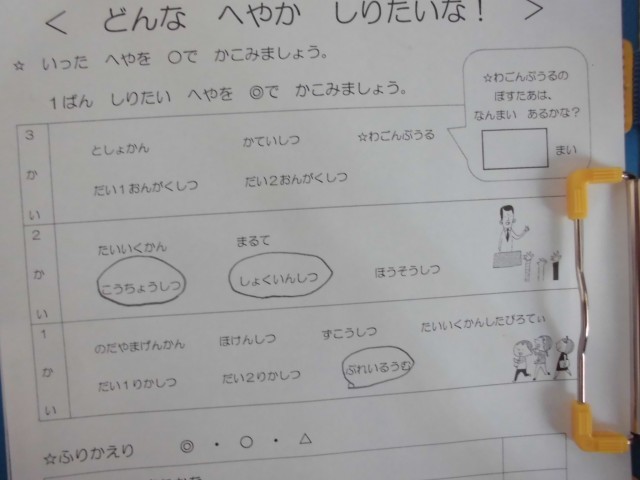 ＜ どんな へやか しりたいな！ ＞
☆ いった へやを ○で かこみましょう。
１ばん しりたい へやを ◎で かこみましょう。
☆わごんぷうるの
ぽすたあは、
なんまい あるかな？
まい
３かい
としょかん かていしつ ☆わごんぷうる
だい１おんがくしつ だい２おんがくしつ
２かい
たいいくかん まるて
こうちょうしつ しょくいんしつ ほうそうしつ
１かい
のだやまげんかん ほけんしつ ずこうしつ たいいくかんしたぴろてぃ
だい１りかしつ だい２りかしつ ぷれいるうむ
☆ふりかえり ◎ ・ ○ ・ △